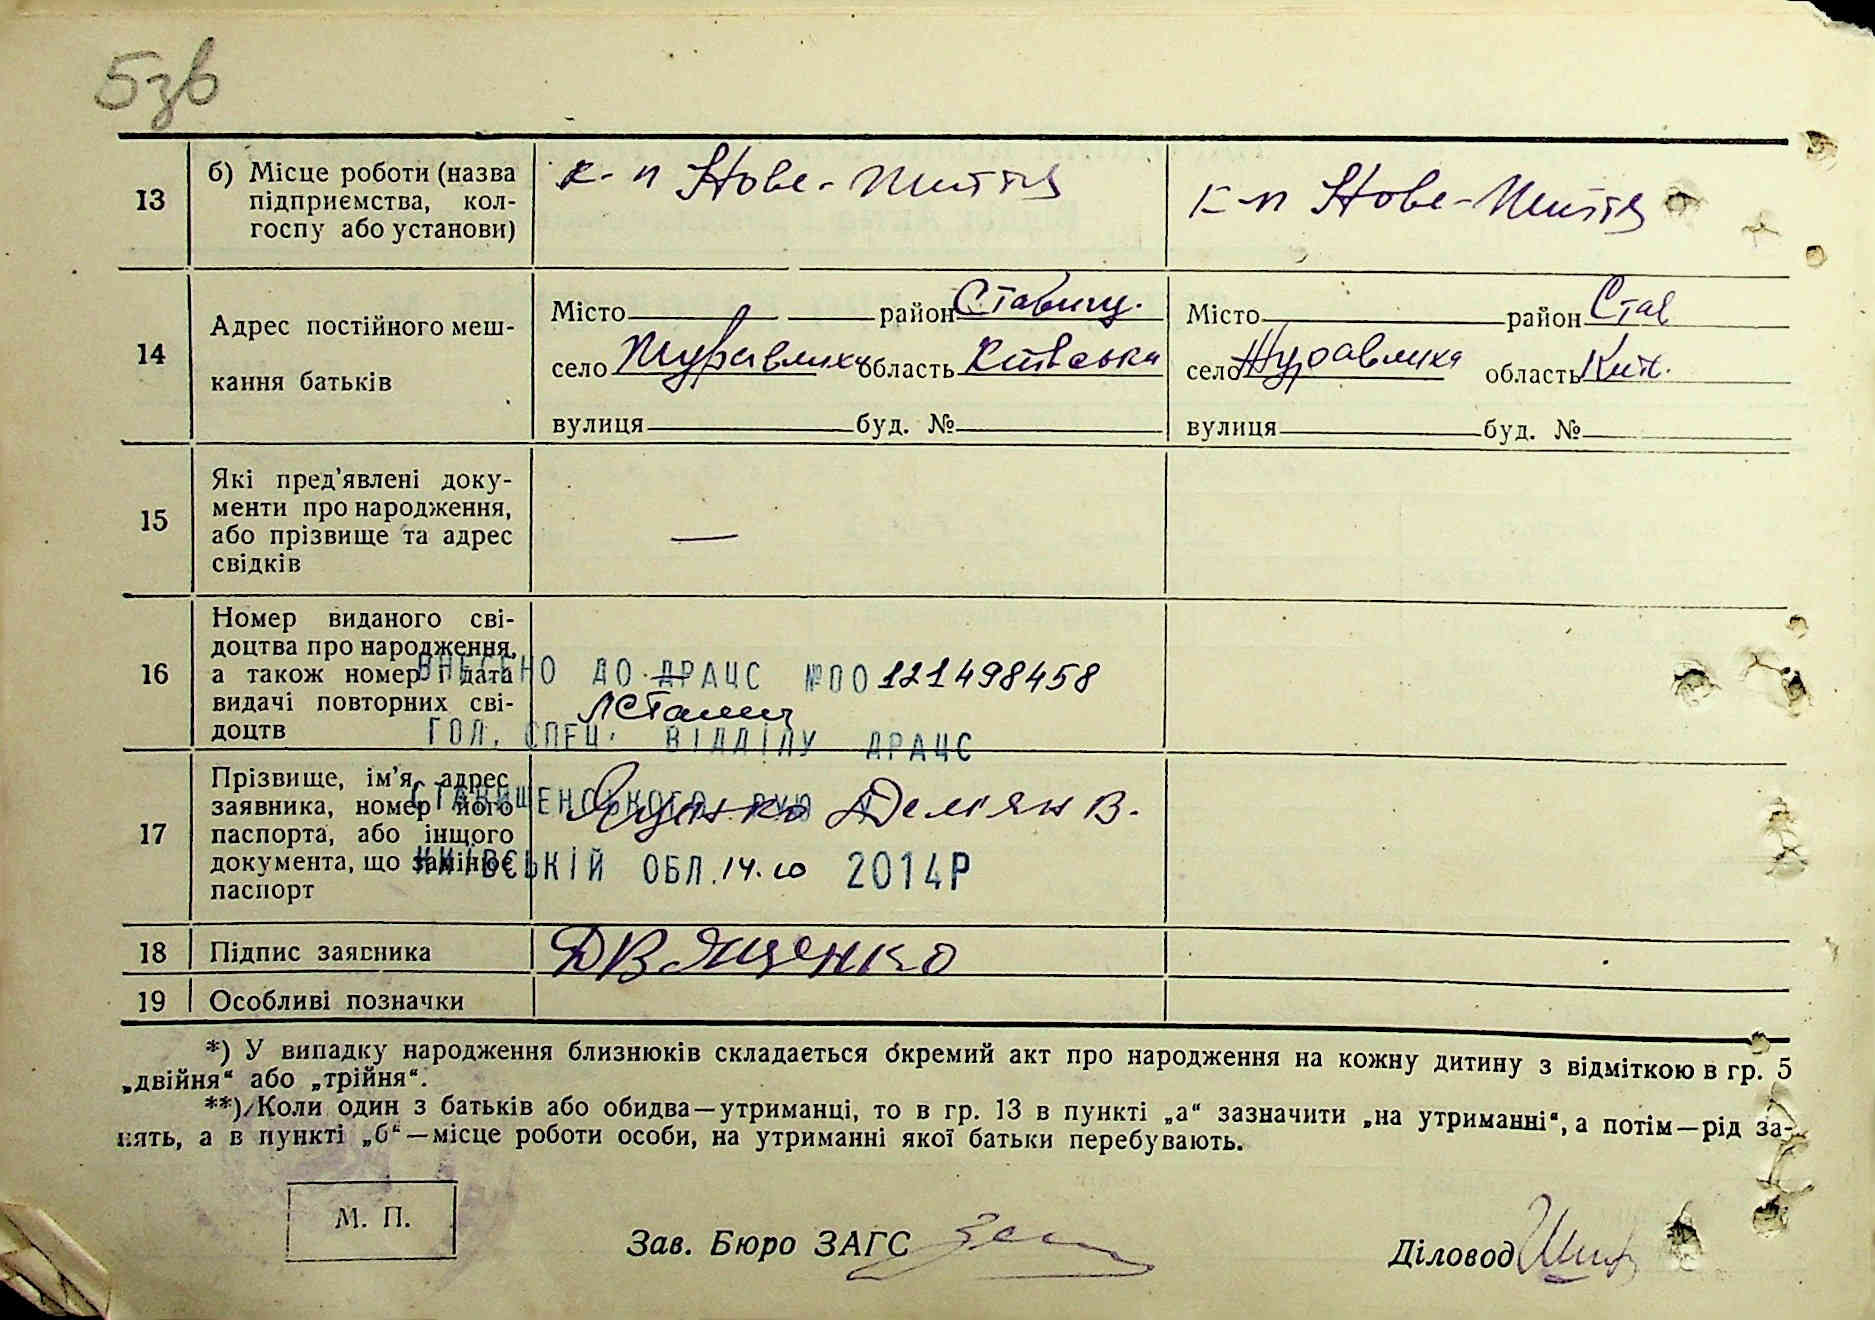 5зв
13
б) Місце роботи (назва
підприємства, кол-
госпу або установи)
к-п Нове-Життя
к-п Нове-Життя
14
Адрес постійного меш-
кання батьків
Місто район Ставищ.
село Журавлиха область Київська
вулиця буд. №
Місто район Став
село Журавлиха область Київ.
вулиця буд. №
15
Які пред'явлені доку-
менти про народження,
або прізвище та адрес
свідків
—
16
Номер виданого сві-
доцтва про народження,
а також номер і дата
видачі повторних сві-
доцтв
ВНЕСЕНО ДО ДРАЦС №00121498458
ГОЛ. СПЕЦ. ВІДДІЛУ ДРАЦС
СТАВИЩЕНСЬКОГО РУЮ У
КИЇВСЬКІЙ ОБЛ. 14.10 2014Р
17
Прізвище, ім'я, адрес
заявника, номер його
паспорта, або іншого
документа, що замінює
паспорт
Ященко Дем'ян В.
18
Підпис заявника
ДВ Ященко
19
Особливі позначки
*) У випадку народження близнюків складається окремий акт про народження на кожну дитину з відміткою в гр. 5
„двійня“ або „трійня“.
**) Коли один з батьків або обидва—утриманці, то в гр. 13 в пункті „а“ зазначити „на утриманні“, а потім—рід за-
нять, а в пункті „б“—місце роботи особи, на утриманні якої батьки перебувають.
М. П.
Зав. Бюро ЗАГС
Діловод